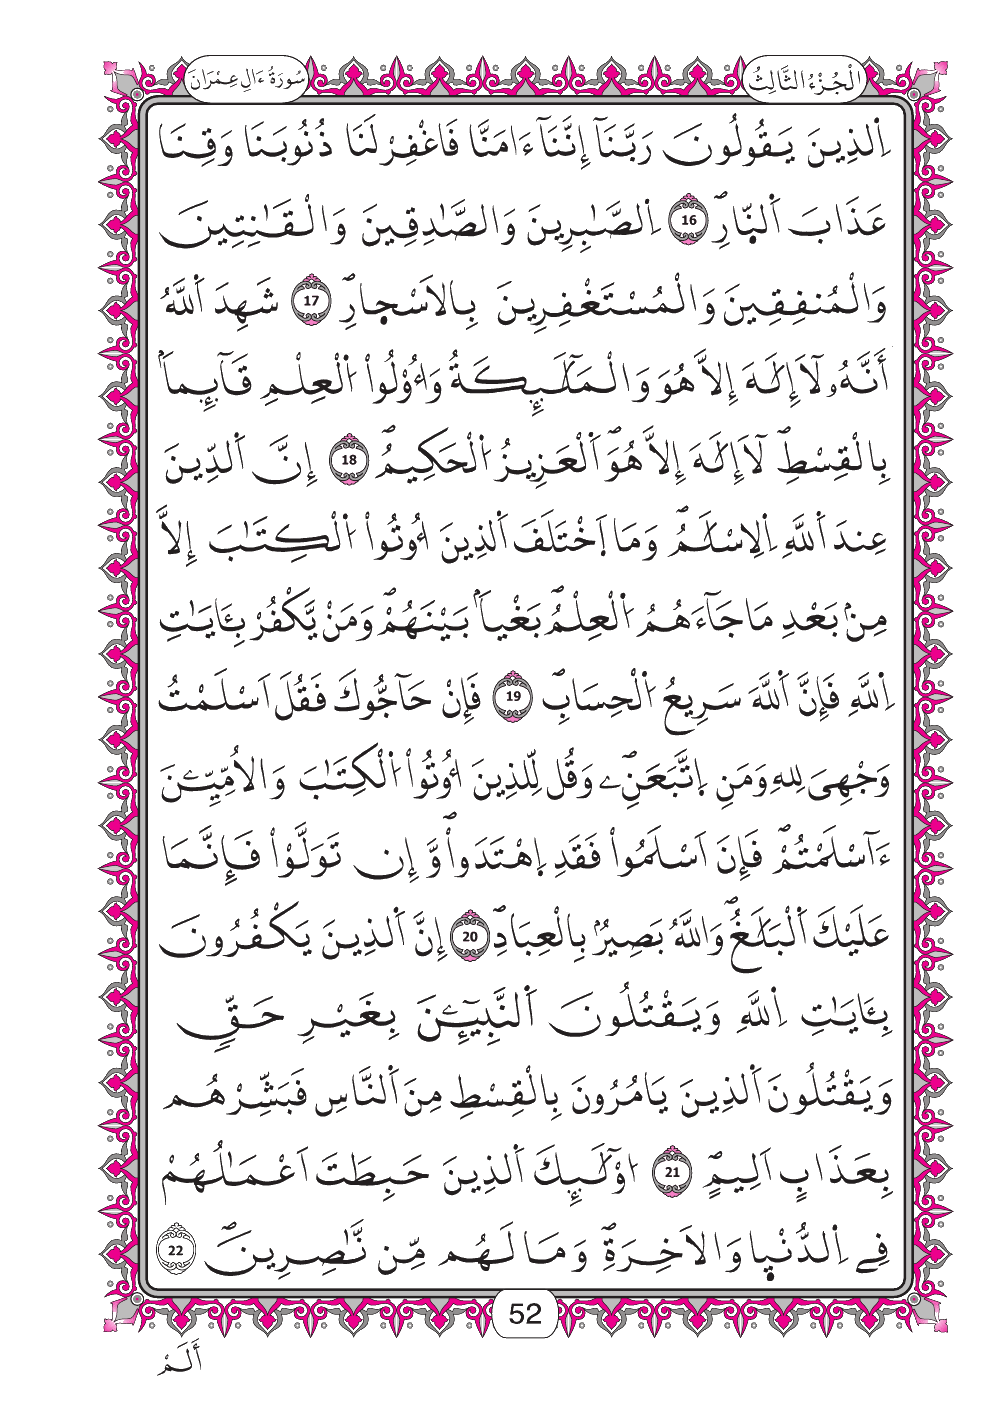 سُورَةُ ءَالِ عِمْرَانَ
اَلْجُزْءُ الثَّالِثُ
اِ۬لذِينَ يَقُولُونَ رَبَّنَآ إِنَّنَآ ءَامَنَّا فَاغْفِرْ لَنَا ذُنُوبَنَا وَقِنَا
عَذَابَ اَ۬لنّ۪ارِۖ 16 اِ۬لصَّٰبِرِينَ وَالصَّٰدِقِينَ وَالْقَٰنِتِينَ
وَالْمُنفِقِينَ وَالْمُسْتَغْفِرِينَ بِالَاسْح۪ارِۖ 17 شَهِدَ اَ۬للَّهُ
أَنَّهُۥ لَآ إِلَٰهَ إِلَّا هُوَ وَالْمَلَٰٓئِكَةُ وَأُوْلُواْ اُ۬لْعِلْمِ قَآئِماَۢ
بِالْقِسْطِۖ لَآ إِلَٰهَ إِلَّا هُوَۖ اَ۬لْعَزِيزُ اُ۬لْحَكِيمُۖ 18 إِنَّ اَ۬لدِّينَ
عِندَ اَ۬للَّهِ اِ۬لِاسْلَٰمُۖ وَمَا اَ۪خْتَلَفَ اَ۬لذِينَ أُوتُواْ اُ۬لْكِتَٰبَ إِلَّا
مِنۢ بَعْدِ مَا جَآءَهُمُ اُ۬لْعِلْمُۖ بَغْياَۢ بَيْنَهُمْۖ وَمَنْ يَّكْفُرْ بِـَٔايَٰتِ
اِ۬للَّهِ فَإِنَّ اَ۬للَّهَ سَرِيعُ اُ۬لْحِسَابِۖ 19 فَإِنْ حَآجُّوكَ فَقُلَ اَسْلَمْتُ
وَجْهِيَ لِلهِ وَمَنِ اِ۪تَّبَعَنِۦۖ وَقُل لِّلذِينَ أُوتُواْ اُ۬لْكِتَٰبَ وَالُامِّيِّـۧنَ
ءَآسْلَمْتُمْۖ فَإِنَ اَسْلَمُواْ فَقَدِ اِ۪هْتَدَواْۖ وَّإِن تَوَلَّوْاْ فَإِنَّمَا
عَلَيْكَ اَ۬لْبَلَٰغُۖ وَاللَّهُ بَصِيرُۢ بِالْعِبَادِۖ 20 إِنَّ اَ۬لذِينَ يَكْفُرُونَ
بِـَٔايَٰتِ اِ۬للَّهِ وَيَقْتُلُونَ اَ۬لنَّبِيٓـِٕۧنَ بِغَيْرِ حَقّٖ
وَيَقْتُلُونَ اَ۬لذِينَ يَامُرُونَ بِالْقِسْطِ مِنَ اَ۬لنَّاسِ فَبَشِّرْهُم
بِعَذَابٍ اَلِيمٍۖ 21 اُوْلَٰٓئِكَ اَ۬لذِينَ حَبِطَتَ اَعْمَٰلُهُمْ
فِے اِ۬لدُّنْي۪ا وَالَاخِرَةِۖ وَمَا لَهُم مِّن نَّٰصِرِينَۖ 22
52
أَلَمْ